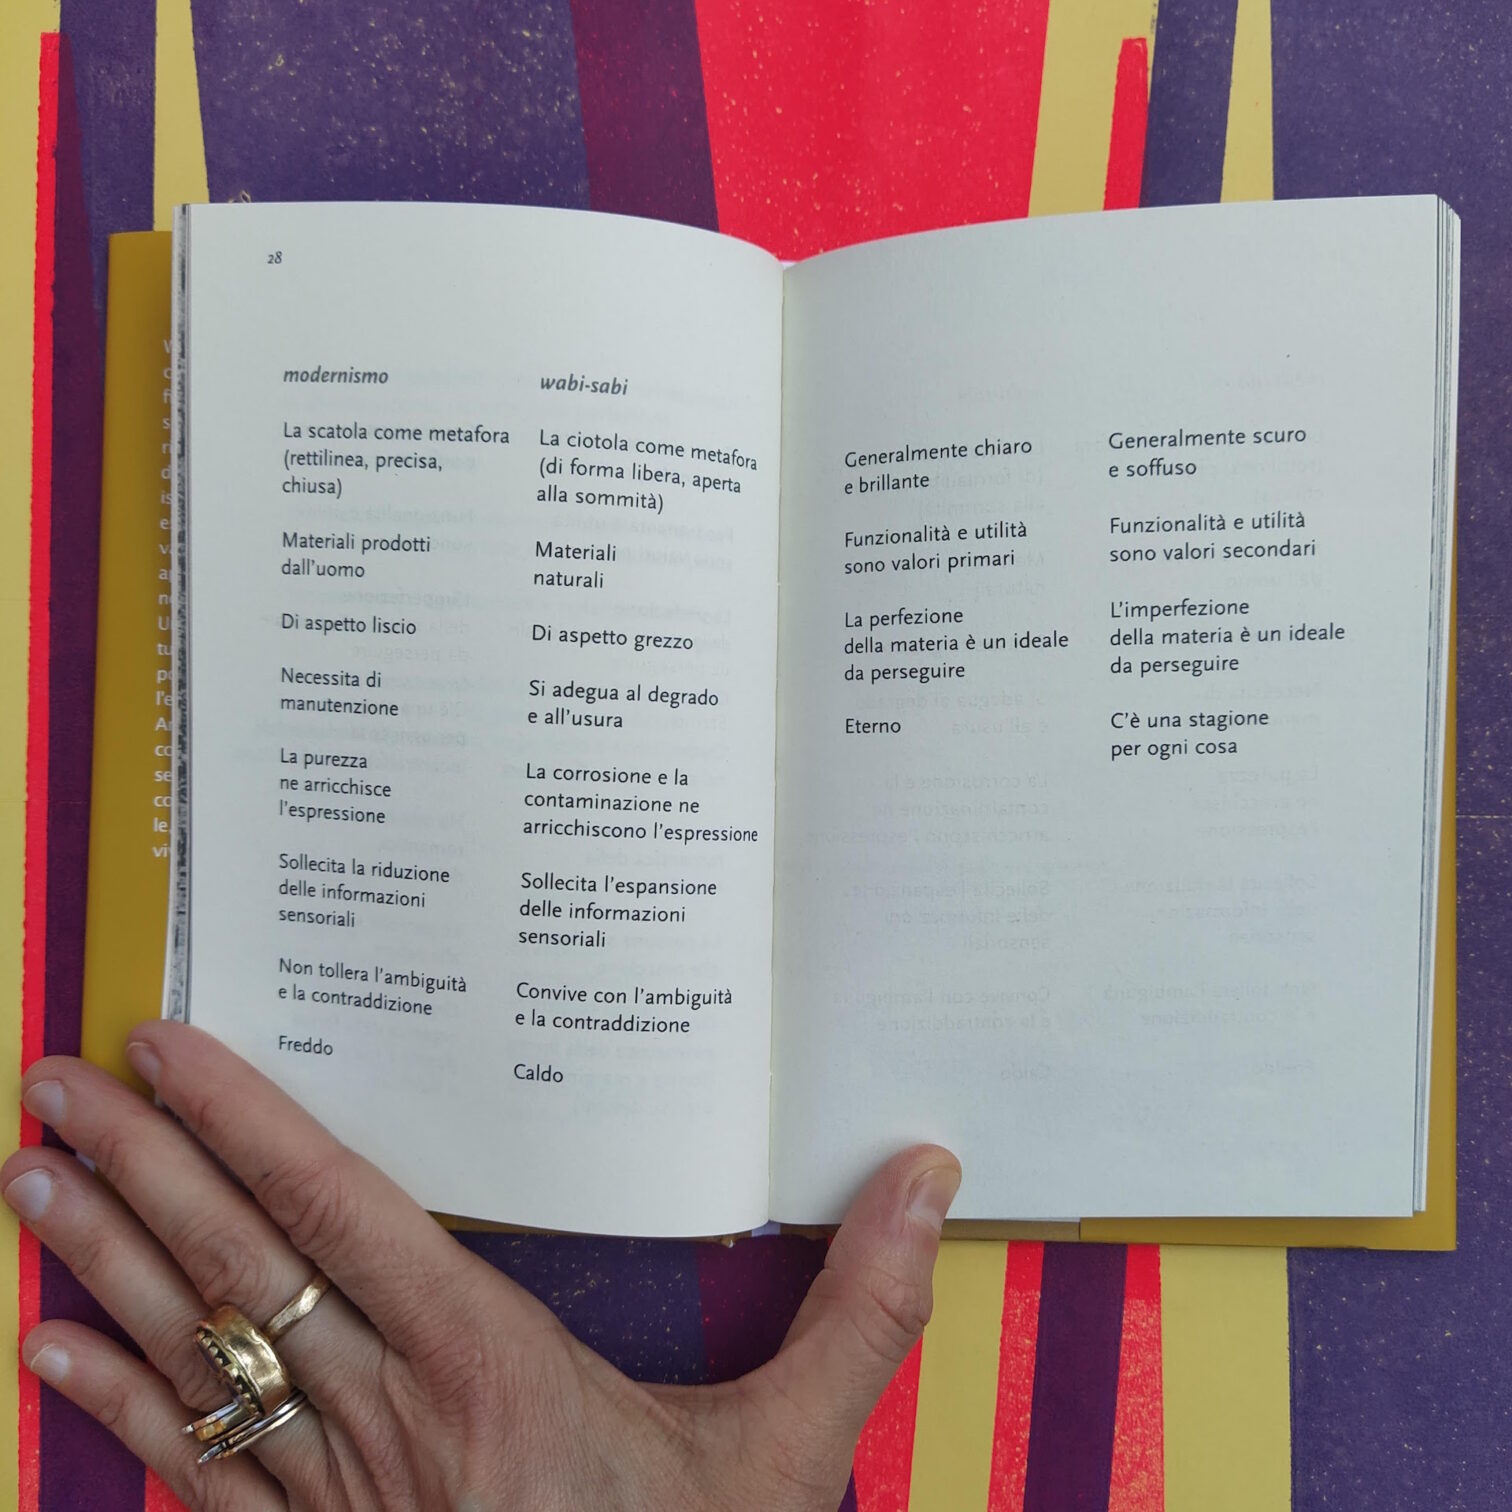 28
modernismo
La scatola come metafora
(rettilinea, precisa,
chiusa)
Materiali prodotti
dall'uomo
Di aspetto liscio
Necessita di
manutenzione
La purezza
ne arricchisce
l'espressione
Sollecita la riduzione
delle informazioni
sensoriali
Non tollera l'ambiguità
e la contraddizione
Freddo
wabi-sabi
La ciotola come metafora
(di forma libera, aperta
alla sommità)
Materiali
naturali
Di aspetto grezzo
Si adegua al degrado
e all'usura
La corrosione e la
contaminazione ne
arricchiscono l'espressione
Sollecita l'espansione
delle informazioni
sensoriali
Convive con l'ambiguità
e la contraddizione
Caldo
Generalmente chiaro
e brillante
Funzionalità e utilità
sono valori primari
La perfezione
della materia è un ideale
da perseguire
Eterno
Generalmente scuro
e soffuso
Funzionalità e utilità
sono valori secondari
L'imperfezione
della materia è un ideale
da perseguire
C'è una stagione
per ogni cosa